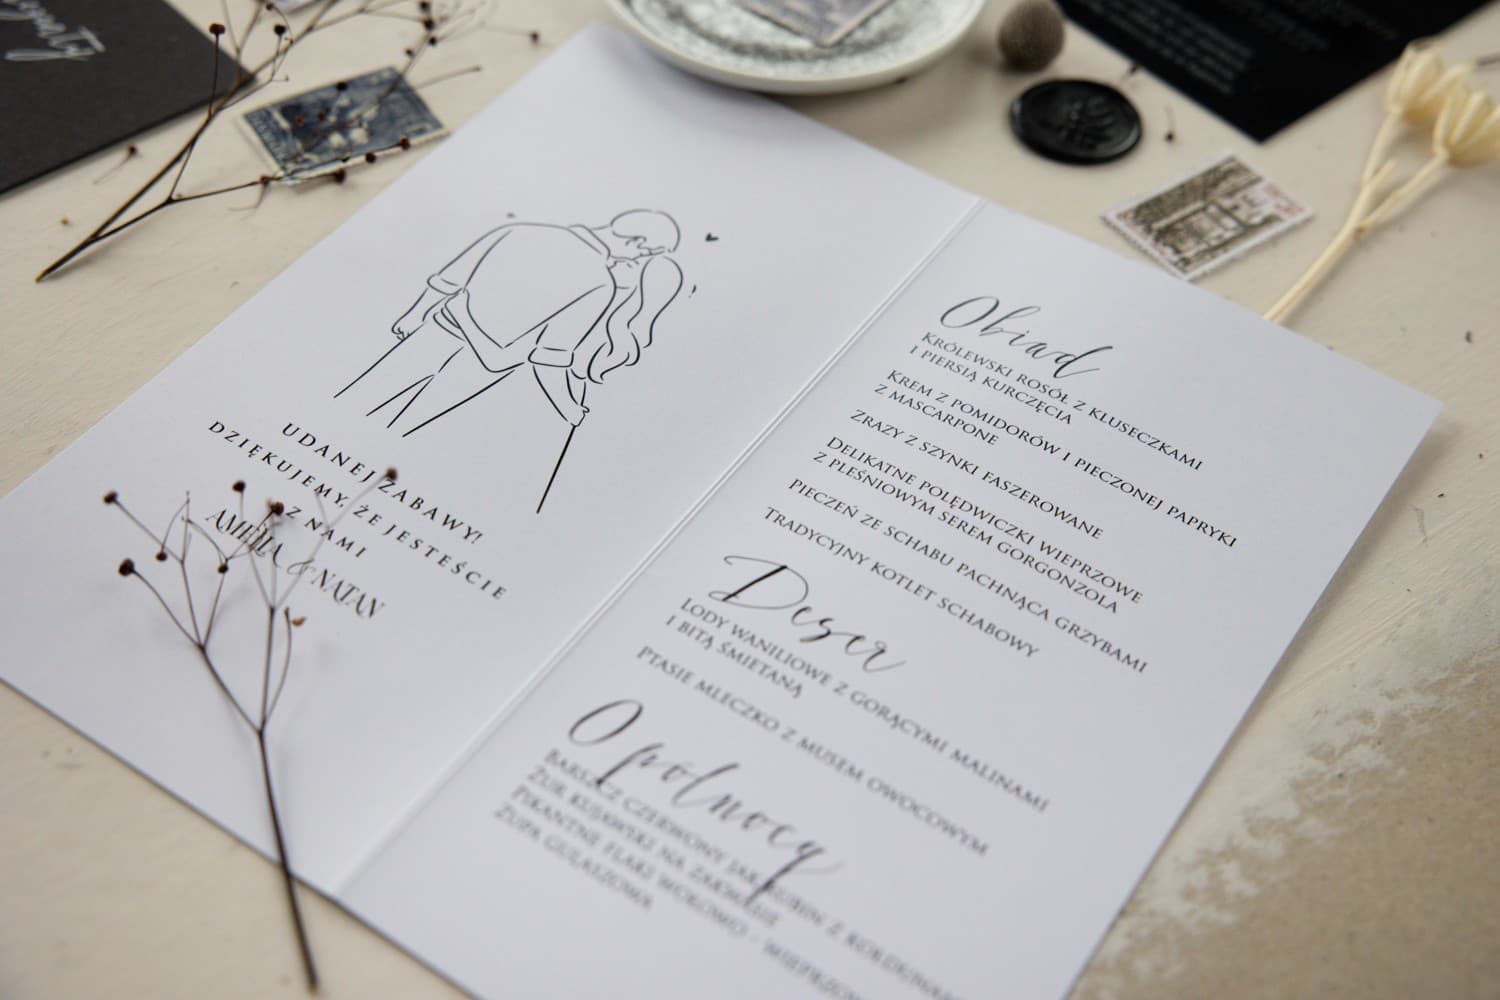 UDANEJ ZABAWY!
DZIĘKUJEMY, ŻE JESTEŚCIE
Z NAMI
AMELIA & NATAN
Obiad
KRÓLEWSKI ROSÓŁ Z KLUSECZKAMI
I PIERSIĄ KURCZĘCIA
KREM Z POMIDORÓW I PIECZONEJ PAPRYKI
Z MASCARPONE
ZRAZY Z SZYNKI FASZEROWANE
DELIKATNE POLĘDWICZKI WIEPRZOWE
Z PLEŚNIOWYM SEREM GORGONZOLA
PIECZEŃ ZE SCHABU PACHNĄCA GRZYBAMI
TRADYCYJNY KOTLET SCHABOWY
Deser
LODY WANILIOWE Z GORĄCYMI MALINAMI
I BITĄ ŚMIETANĄ
PTASIE MLECZKO Z MUSEM OWOCOWYM
O północy
BARSZCZ CZERWONY JAK RUBIN Z
ŻUR KUJAWSKI NA ZAKWASIE
PIKANTNE FLAKI WOŁOWO -
ZUPA GULASZOWA